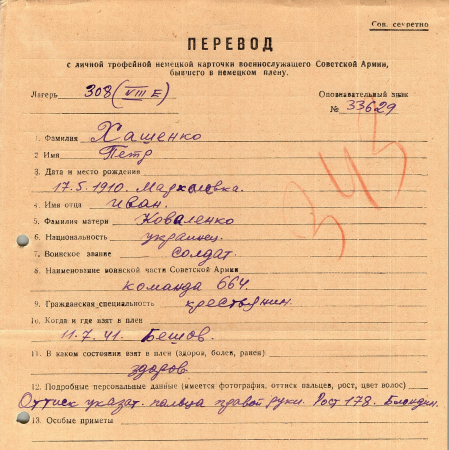 Сов. секретно
ПЕРЕВОД
с личной трофейной немецкой карточки военнослужащего Советской Армии,
бывшего в немецком плену.
Лагерь 308 (VIII E) Опознавательный знак
№ 33629
1. Фамилия Хащенко
2 Имя Петр
3. Дата и место рождения
17.5.1910. Мархалевка.
4. Имя отца Иван.
5. Фамилия матери Коваленко
6. Национальность украинец.
7. Воинское звание солдат.
8. Наименование воинской части Советской Армии
команда 664.
9. Гражданская специальность крестьянин.
10. Когда и где взят в плен
11.7.41. Бешов.
11. В каком состоянии взят в плен (здоров, болен, ранен)
здоров.
12. Подробные персональные данные (имеется фотография, оттиск пальцев, рост, цвет волос)
Оттиск указат. пальца правой руки. Рост 178. Блондин.
13. Особые приметы